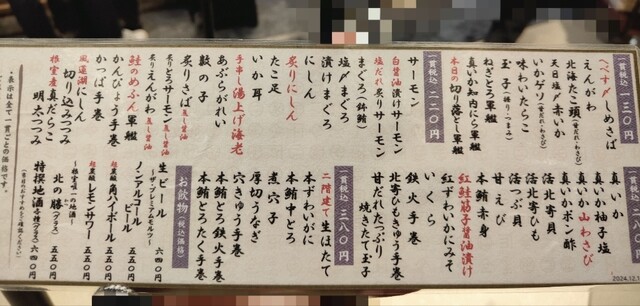 一貫税込 一三〇円
へべす〆しめさば
えんがわ
北海たこ頭(甘だれ・わさび)
天日塩〆赤いか
いかゲソ(甘だれ・わさび)
味わいたらこ
玉子(握り・つまみ)
ねぎとろ軍艦
真いか知内にら軍艦
本日の切り落とし軍艦
一貫税込 二二〇円
サーモン
白醤油漬けサーモン
塩だれ炙りサーモン
まぐろ
塩〆まぐろ
漬けまぐろ
にしん
炙りにしん
たこ足
いか耳
手串し湯上げ海老
あぶらがれい
数の子
炙りさば
炙りとろサーモン
炙りえんがわ
鮭のめふん軍艦
かんぴょう手巻
かっぱ手巻
風蓮湖にしん
切り込みつつみ
根室産真だらこ
明太つつみ
・表示は全て一貫ごとの価格です。
真いか
真いか柚子塩
真いか山わさび
真いかポン酢
活北寄貝
活北寄ひも
活つぶ貝
甘えび
本鮪赤身
紅鮭筋子醤油漬け
紅ずわいかにみそ
いくら
鉄火手巻
北寄ひもきゅうり手巻
甘だれたっぷり
焼きたて玉子
一貫税込 三八〇円
二階建て生ほたて
本ずわいがに
本鮪中とろ
煮穴子
厚切うなぎ
穴きゅう手巻
本鮪とろ鉄火手巻
本鮪とろたく手巻
お飲物(税込価格)
生ビール
~ザ・プレミアムモルツ~
六四〇円
ノンアルコール
ビール
五五〇円
超炭酸角ハイボール
五五〇円
超炭酸レモンサワー
五五〇円
~根室唯一の地酒~
北の勝(グラス)
五五〇円
特撰地酒各種(グラス)
六四〇円
2024.12.1